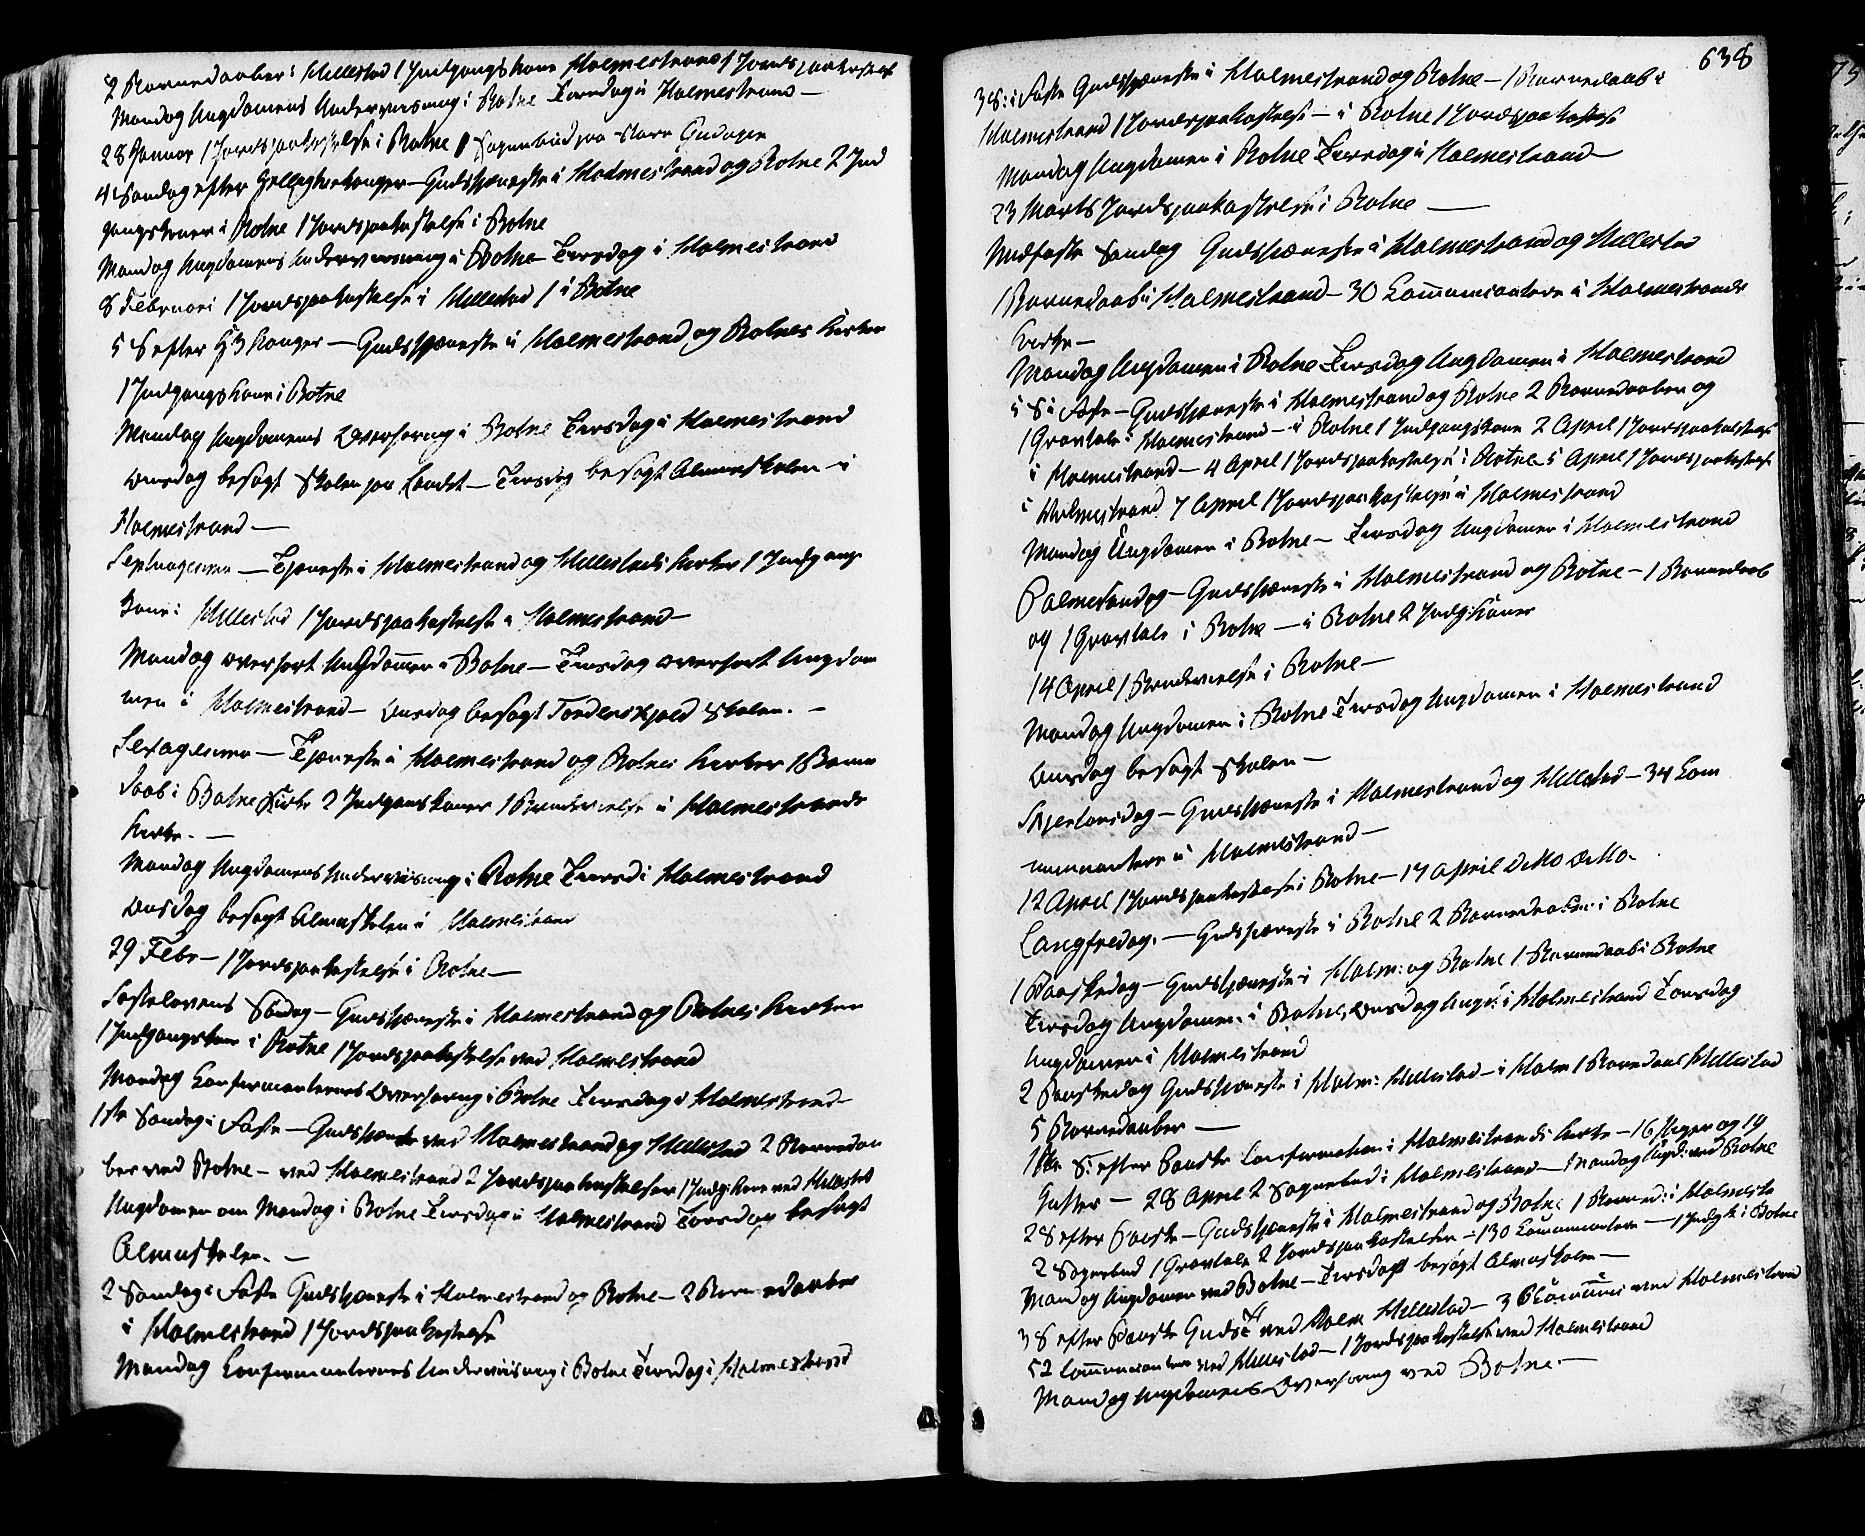 2 Barnedaaber i Hillestad 1 Indgangskone Holmestrand 1 Jordspaakastelse
Mandag Ungdomens Underviisning i Botne Tirsdag i Holmestrand —
28 Januar 1 Jordspaakastelse i Botne Sognebud paa store Gudagen
4 Søndag efter Hellig tre konger — Gudstjæneste i Holmestrand og Botne 2 Ind
gangskoner i Botne 1 Jordspaakastelse i Botne
Mandag Ungdomens Underviisning i Botne Tirsdag i Holmestrand
8 Februari 1 Jordspaakastelse i Hillestad 1 i Botne
5 S efter H 3 Konger — Gudstjæneste i Holmestrand og Botnes Kirker
1 Indgangskone i Botne
Mandag Ungdomens Overhøring i Botne Tirsdag i Holmestrand
Onsdag besøgt Skolen paa Landet — Tirsdag besøgt Almueskolen i
Holmestrand —
Septuagesima — Tjæneste i Holmestrand og Hillestads Kirker 1 Indgangs
kone i Hillestad 1 Jordspaakastelse i Holmestrand —
Mandag overhørt Ungdommen i Botne — Tirsdag overhørt Ungdom
men i Holmestrand — Onsdag besøgt Tordenskjold Skolen. —
Sexagesima — Tjæneste i Holmestrand og Botnes Kirker 1 Barne
daab i Botne Kirke 2 Indgangskoner 1 Brudevielse i Holmestrands
Kirke. —
Mandag Ungdomens Underviisning i Botne Tirsd i Holmestrand
Onsdag besøgt Almueskolen i Holmestrand
29 Febr — 1 Jordspaakastelse i Botne —
Fastelavens Søndag — Gudstjæneste i Holmestrand og Botnes Kirker
1 Indgangskone i Botne 1 Jordspaakastelse ved Holmestrand
Mandag Confirmanternes Overhøring i Botne Tirsdag i Holmestrand
1ste Søndag i Faste — Gudstjæneste ved Holmestrand og Hillestad 2 Barnedaa
ber ved Botne — ved Holmestrand 2 Jordspaakastelser 1 Indg:kone ved Hillestad
Ungdomen om Mandag i Botne Tirsdag i Holmestrand Torsdag besøgt
Almueskolen. —
2 Søndag i Faste Gudstjæneste i Holmestrand og Botne — 2 Barnedaaber
i Holmestrand 1 Jordspaakastelse
Mandag Confirmanternes Underviisning i Botne Tirsdag i Holmestrand
638
3 S: i Faste Gudstjæneste i Holmestrand og Botne — 1 Barnedaab i
Holmestrand 1 Jordspaakastelse — i Botne 1 Jordspaakastelse
Mandag Ungdomen i Botne Tirsdag i Holmestrand —
23 Marts Jordspaakastelse i Botne —
Midfaste Søndag Gudstjæneste i Holmestrand og Hillestad
1 Barnedaab i Holmestrand — 30 Communicantere i Holmestrands
Kirke —
Mandag Ungdomen i Botne Tirsdag Ungdomen i Holmestrand
5 S i Faste — Gudstjæneste i Holmestrand og Botne 2 Barnedaaber og
1 Gravtale i Holmestrand — i Botne 1 Indgangskone 2 April 1 Jordspaakastelse
i Holmestrand — 4 April 1 Jordspaakastelse i Botne 5 April 1 Jordspaakastelse
i Holmestrand 7 April 1 Jordspaakastelse i Holmestrand
Mandag Ungdomen i Botne — Tirsdag Ungdomen i Holmestrand
Palmesøndag — Gudstjæneste i Holmestrand og Botne — 1 Barnedaab
og 1 Gravtale i Botne — i Botne 2 Indg:koner
14 April 1 Brudevielse i Botne —
Mandag Ungdomen i Botne Tirsdag Ungdomen i Holmestrand
Onsdag besøgt Skolen —
Skjertorsdag — Gudstjæneste i Holmestrand og Hillestad — 34 Com
municantere i Holmestrand —
12 April 1 Jordspaakastelse i Botne — 17 April ditto ditto.
Langfredag. — Gudstjæneste i Botne 2 Barnedaaber i Botne
1 Paaskedag — Gudstjæneste i Holm: og Botne 1 Barnedaab i Botne
Tirsdag Ungdomen i Botne, Onsdag Ungd: i Holmestrand Torsdag
Ungdomen i Holmestrand
2 Paaskedag Gudstjæneste i Holm: Hillestad — i Holm 1 Barnedaab Hillestad
5 Barnedaaber —
1ste S: efter Paaske Confirmation i Holmestrands Kirke — 16 Piger og 19
Gutter — 28 April 2 Sognebud i Holmestrand — Mandag Ungd: ved Botne
2 S efter Paaske — Gudstjæneste i Holmestrand og Botne 1 Barned: i Holmestr
2 Sognebud 1 Gravtale 2 Jordspaakastelser — 130 Communicantere — 1 Indg k i Botne
Mandag Ungdomen ved Botne — Tirsdag besøgt Almueskolen —
3 S efter Paaske Guds T ved Holm Hillestad — 3 ved Holmestrand
52 Communicantere ved Hillestad — 1 Jordspaakastelse ved Holmestrand
Mandag Ungdomens Overhøring ved Botne. —